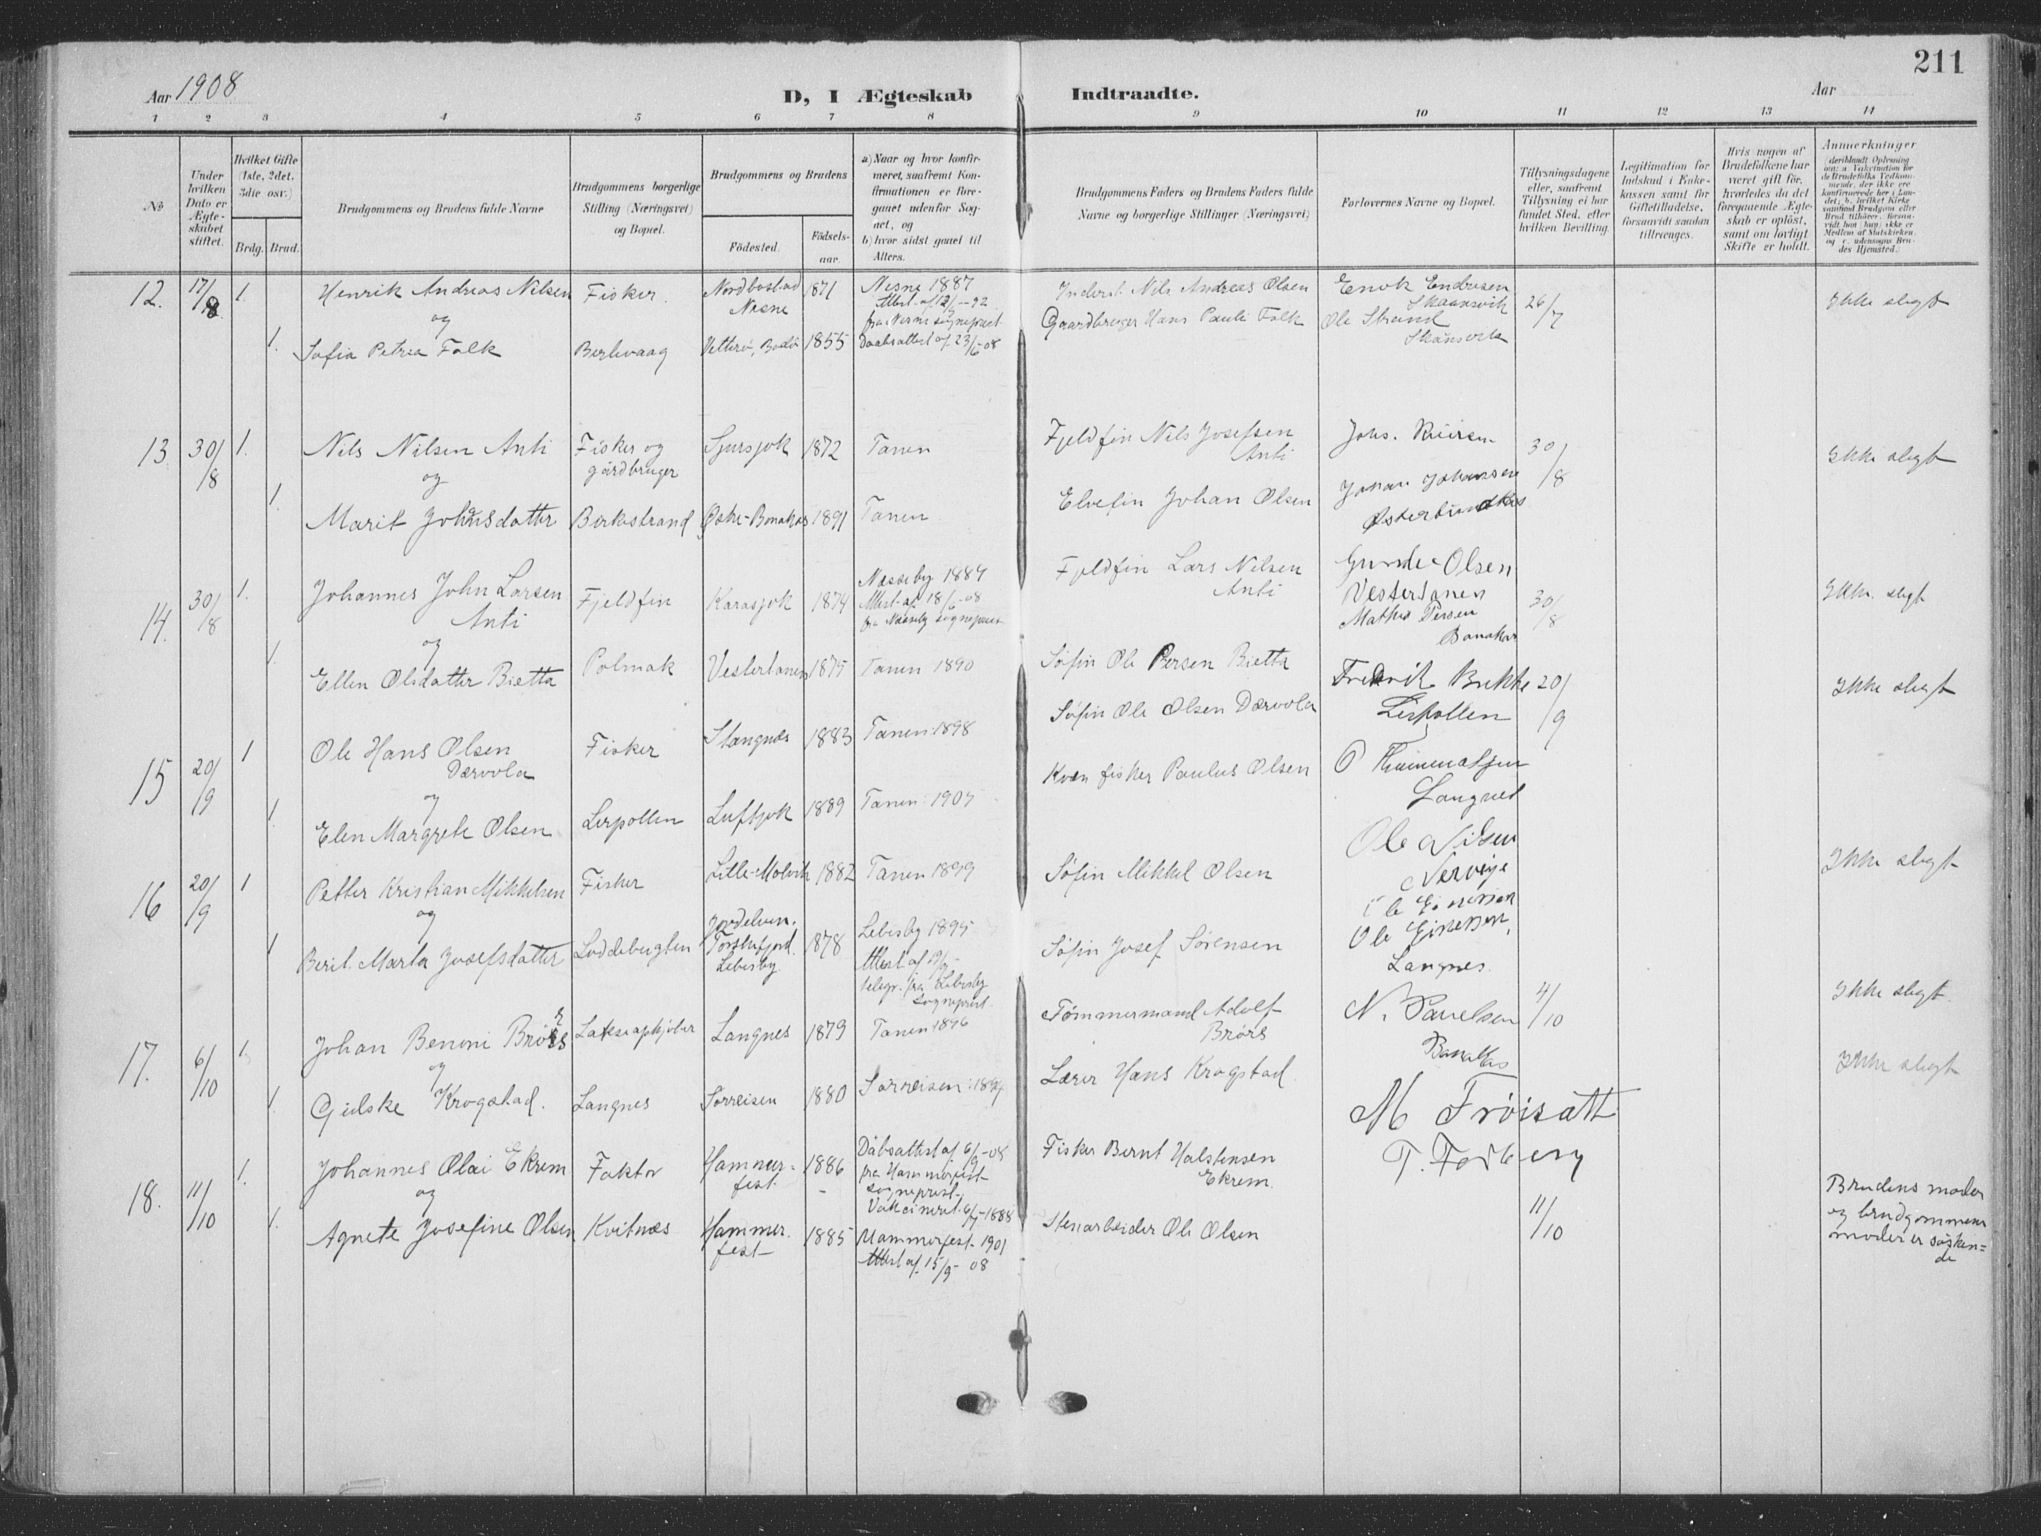 211
Aar 1908
D, I Ægteskab Indtraadte.
Aar
1 2 3 4 5 6 7 8 9 10 11 12 13 14
№
Under hvilken Dato er Ægteskabet stiftet.
Hvilket Gifte (1ste, 2det, 3die osv.)
Brdg. Brud.
Brudgommens og Brudens fulde Navne
Brudgommens borgerlige Stilling (Næringsvei) og Bopæl.
Brudgommens og Brudens
Födested.
Födselsaar.
a) Naar og hvor konfirmeret, saafremt Konfirmationen er foregaaet udenfor Sognet, og
b) hvor sidst gaaet til Alters.
Brudgommens Faders og Brudens Faders fulde Navne og borgerlige Stillinger (Næringsvei)
Forlovernes Navne og Bopæl.
Tillysningsdagene eller, saafremt Tillysning ei har fundet Sted, efter hvilken Bevilling.
Legitimation for Indskud i Enkekassen samt for Giftetilladelse, forsaavidt saadan tiltrænges.
Hvis nogen af Brudefolkene har været gift før, hvorledes da det foregaaende Ægteskab er opløst, samt om lovligt Skifte er holdt.
Anmerkninger
12. 17/8 1. Henrik Andreas Nilsen Fisker. Nordbostad Nesne 1871 Nesne 1887
Attest af 12/ -92
fra Nesne sogneprest
Inderst. Nils Andreas Olsen Enok Endresen Skaansvik 26/7 Ikke slegt
og
1. Sofia Petrea Falk Berlevaag Bodø 1855 Daabsattest af 23/6 08
Gaardbruger Hans Pauli Falk Ole Strand
13. 30/8 1. Nils Nilsen Anti Fisker og gårdbruger 1872 Tanen
Fjeldfin Nils Josefsen Anti Johs. 30/8 Ikke slegt
og
1. Marit Johnsdatter Birkestrand Østre-Bonakas 1891 Tanen
Elvefin Johan Olsen Johan Johansen
14. 30/8 1. Johannes John Larsen Anti Fjeldfin Karasjok 1874 Næsseby 1889
Attest af 18/6-08
fra Næsseby sogneprest
Fjeldfin Lars Nilsen Anti Olsen Vestertanen 30/8 Ikke slegt
og
1. Ellen Olsdatter Bietta Polmak Vestertanen 1875 Tanen 1890
Søfin Ole Persen Bietta Mathis Persen Bonakas
15 20/9 1 Ole Hans Olsen Dærvola Fisker Stangnæs 1883 Tanen 1898
Søfin Ole Olsen Dærvola Fredrik Bukke Lerpollen 20/9 Ikke slegt
og
1. Elen Margrete Olsen Lerpollen Luftjok 1889 Tanen 1905
Kvæn fisker Paulus Olsen Langnes
16 20/9 1 Petter Kristian Mikkelsen Fisker Lille-Molvik 1882 Tanen 1899
Søfin Mikkel Olsen Ole Nilsen Ikke slegt
og
1 Berit Marta Josefsdatter Loddebugten Torskefjord. Lebesby 1878 Lebesby 1895
Attest af
telegr. fra Lebesby Sogneprest.
Søfin Josef Sørensen Ole Einersen, Langnes.
17. 6/10 1. Johan Benoni Brørs Lakseopkjøber Langnes 1879 Tanen 1896
Tømmermand Adolf Brørs N. Pavelsen Bonakas 4/10 Ikke slegt
og
1. Gidske Krogstad. Langnes Sørreisen 1880 Sørreisen: 1894
Lærer Hans Krogstad. M Frøisatt Ikke slegt
18. 11/10 1. Johannes Olai Ekrem Faktor Hammerfest. 1886 Dåbsattest af 6/9-08
fra Hammerfest sogneprest.
Vakcineret 6/7-1888
Fisker Bernt Halstensen Ekrem. T. Forberg 11/10
Brudens moder og brudgommens moder er søskende
og
1. Agnete Josefine Olsen Kvitnæs Hammerfest 1885 Hammerfest 1901
Attest af 15/9- 08
Stenarbeider Ole Olsen